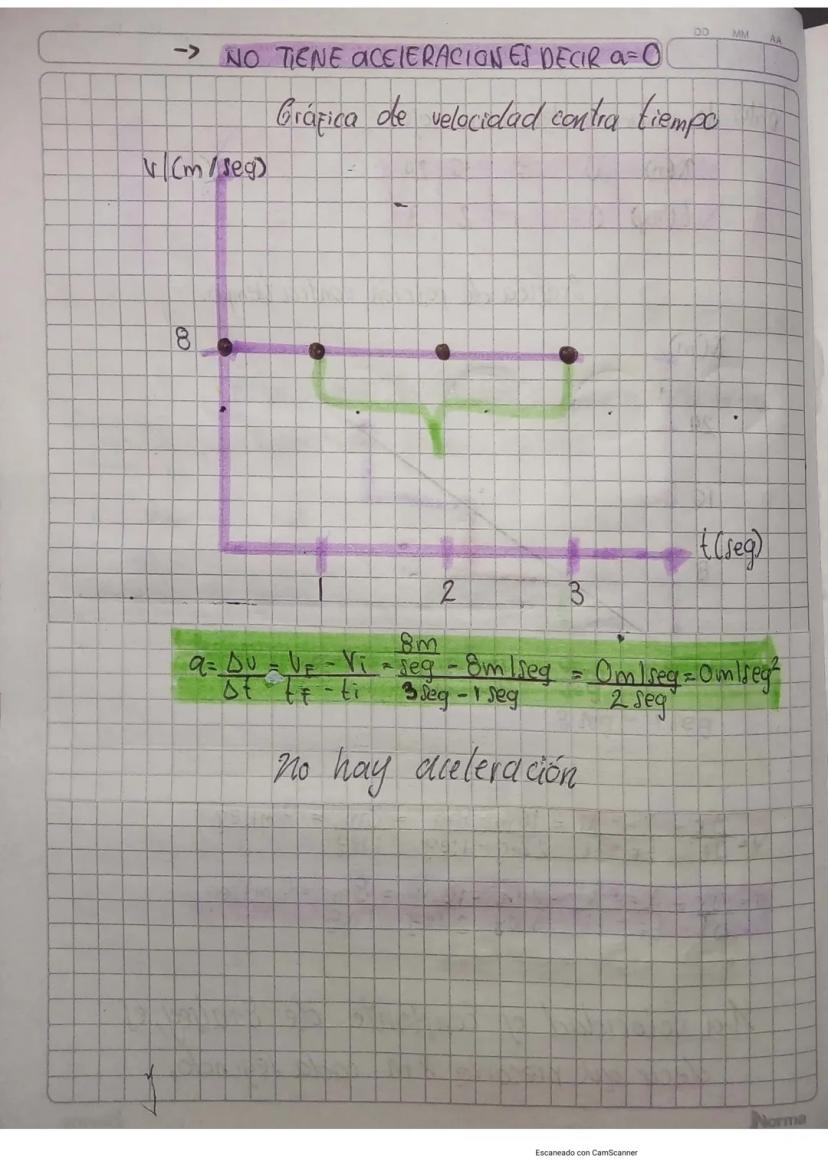 DD MM AA
→ NO TIENE ACELERACION ES DECIR a=0
Gráfica de velocidad contra tiempo
V|(m/seg)
8
t(seg)
1 2 3
a = Δv/Δt = VF - Vi / tF - ti = 8m/seg - 8m/seg / 3seg - 1seg = 0m/seg / 2seg = 0m/seg²
no hay aceleración
Norma
Escaneado con CamScanner